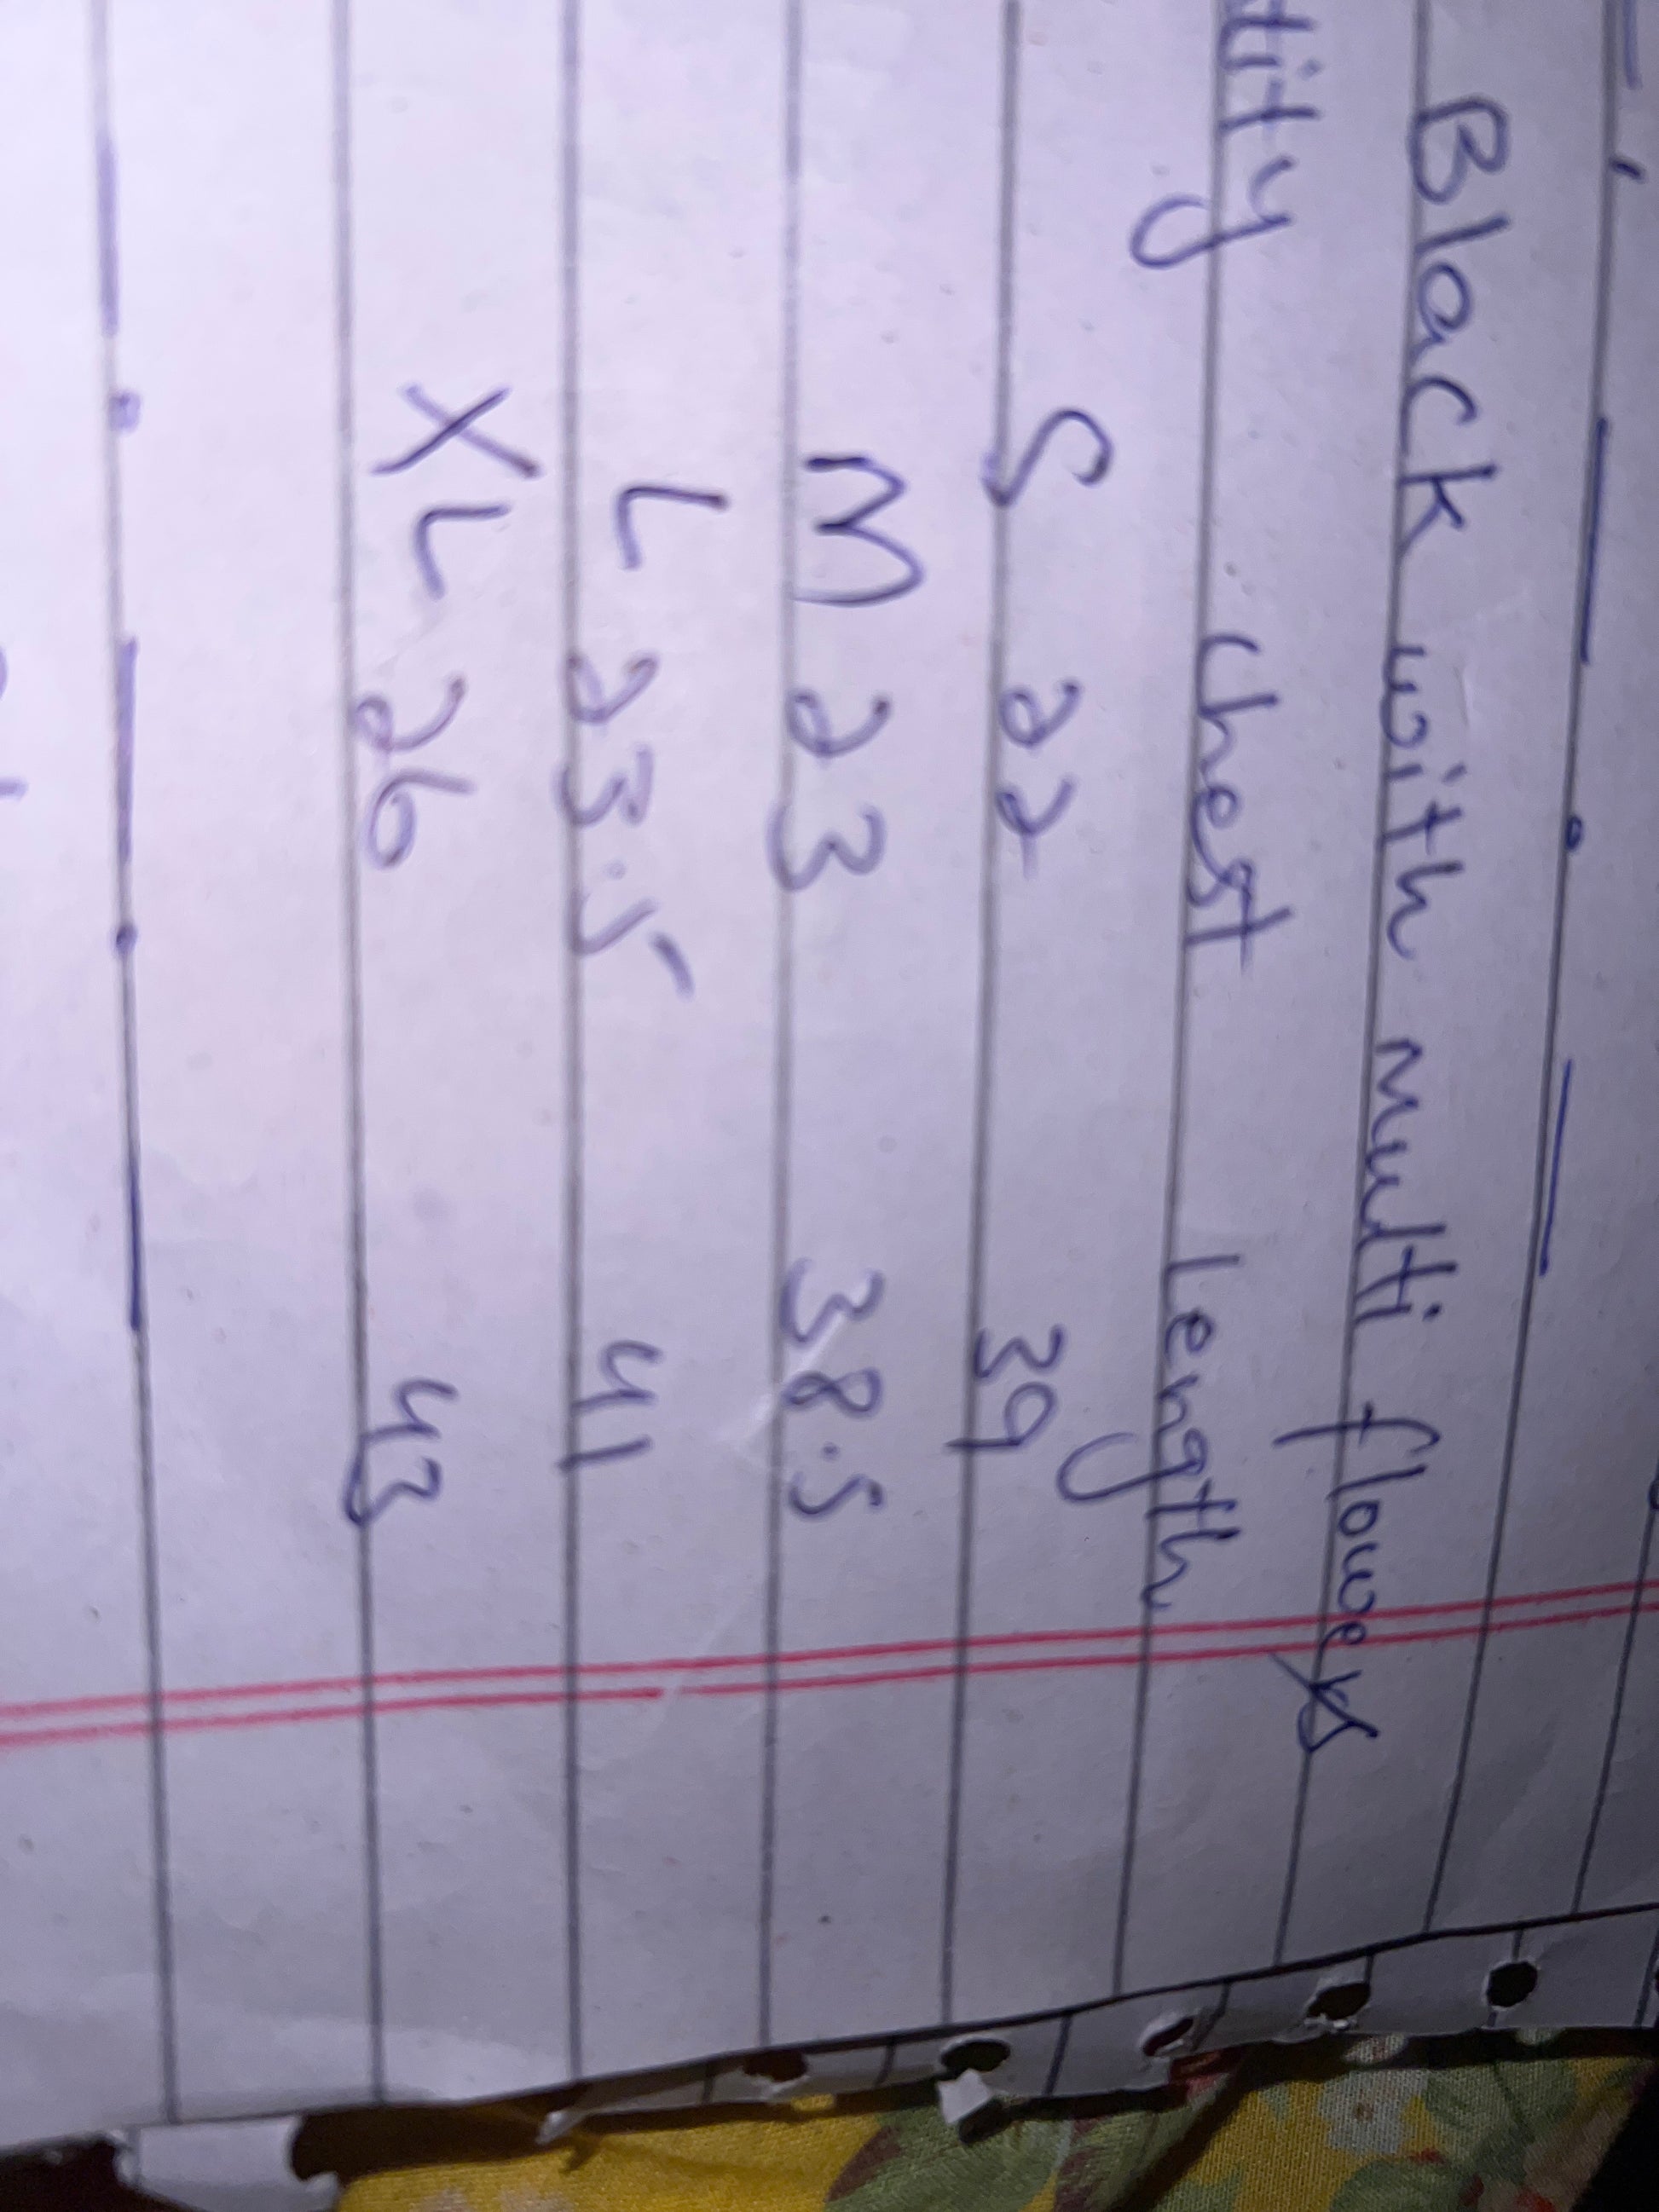 Black with multi flowers
tity chest length
S 22 39
M 23 38.5
L 23.5 41
XL 26 43